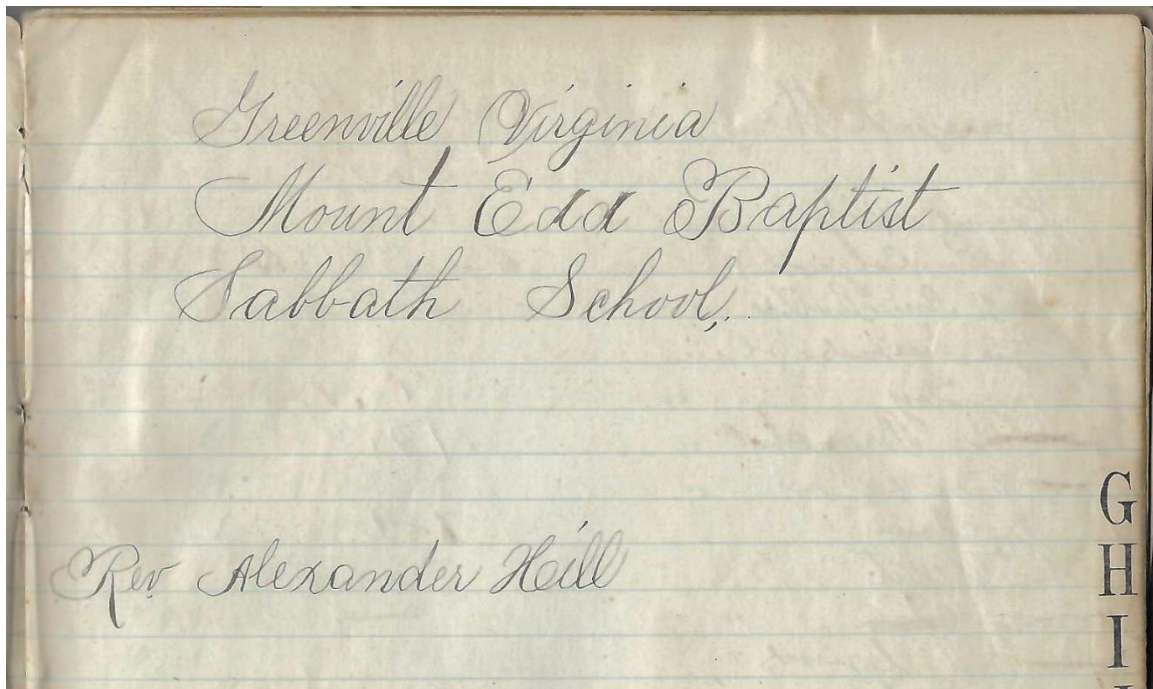 Greenville Virginia
Mount Edd Baptist
Sabbath School,..
Rev Alexander Hill
G
H
I